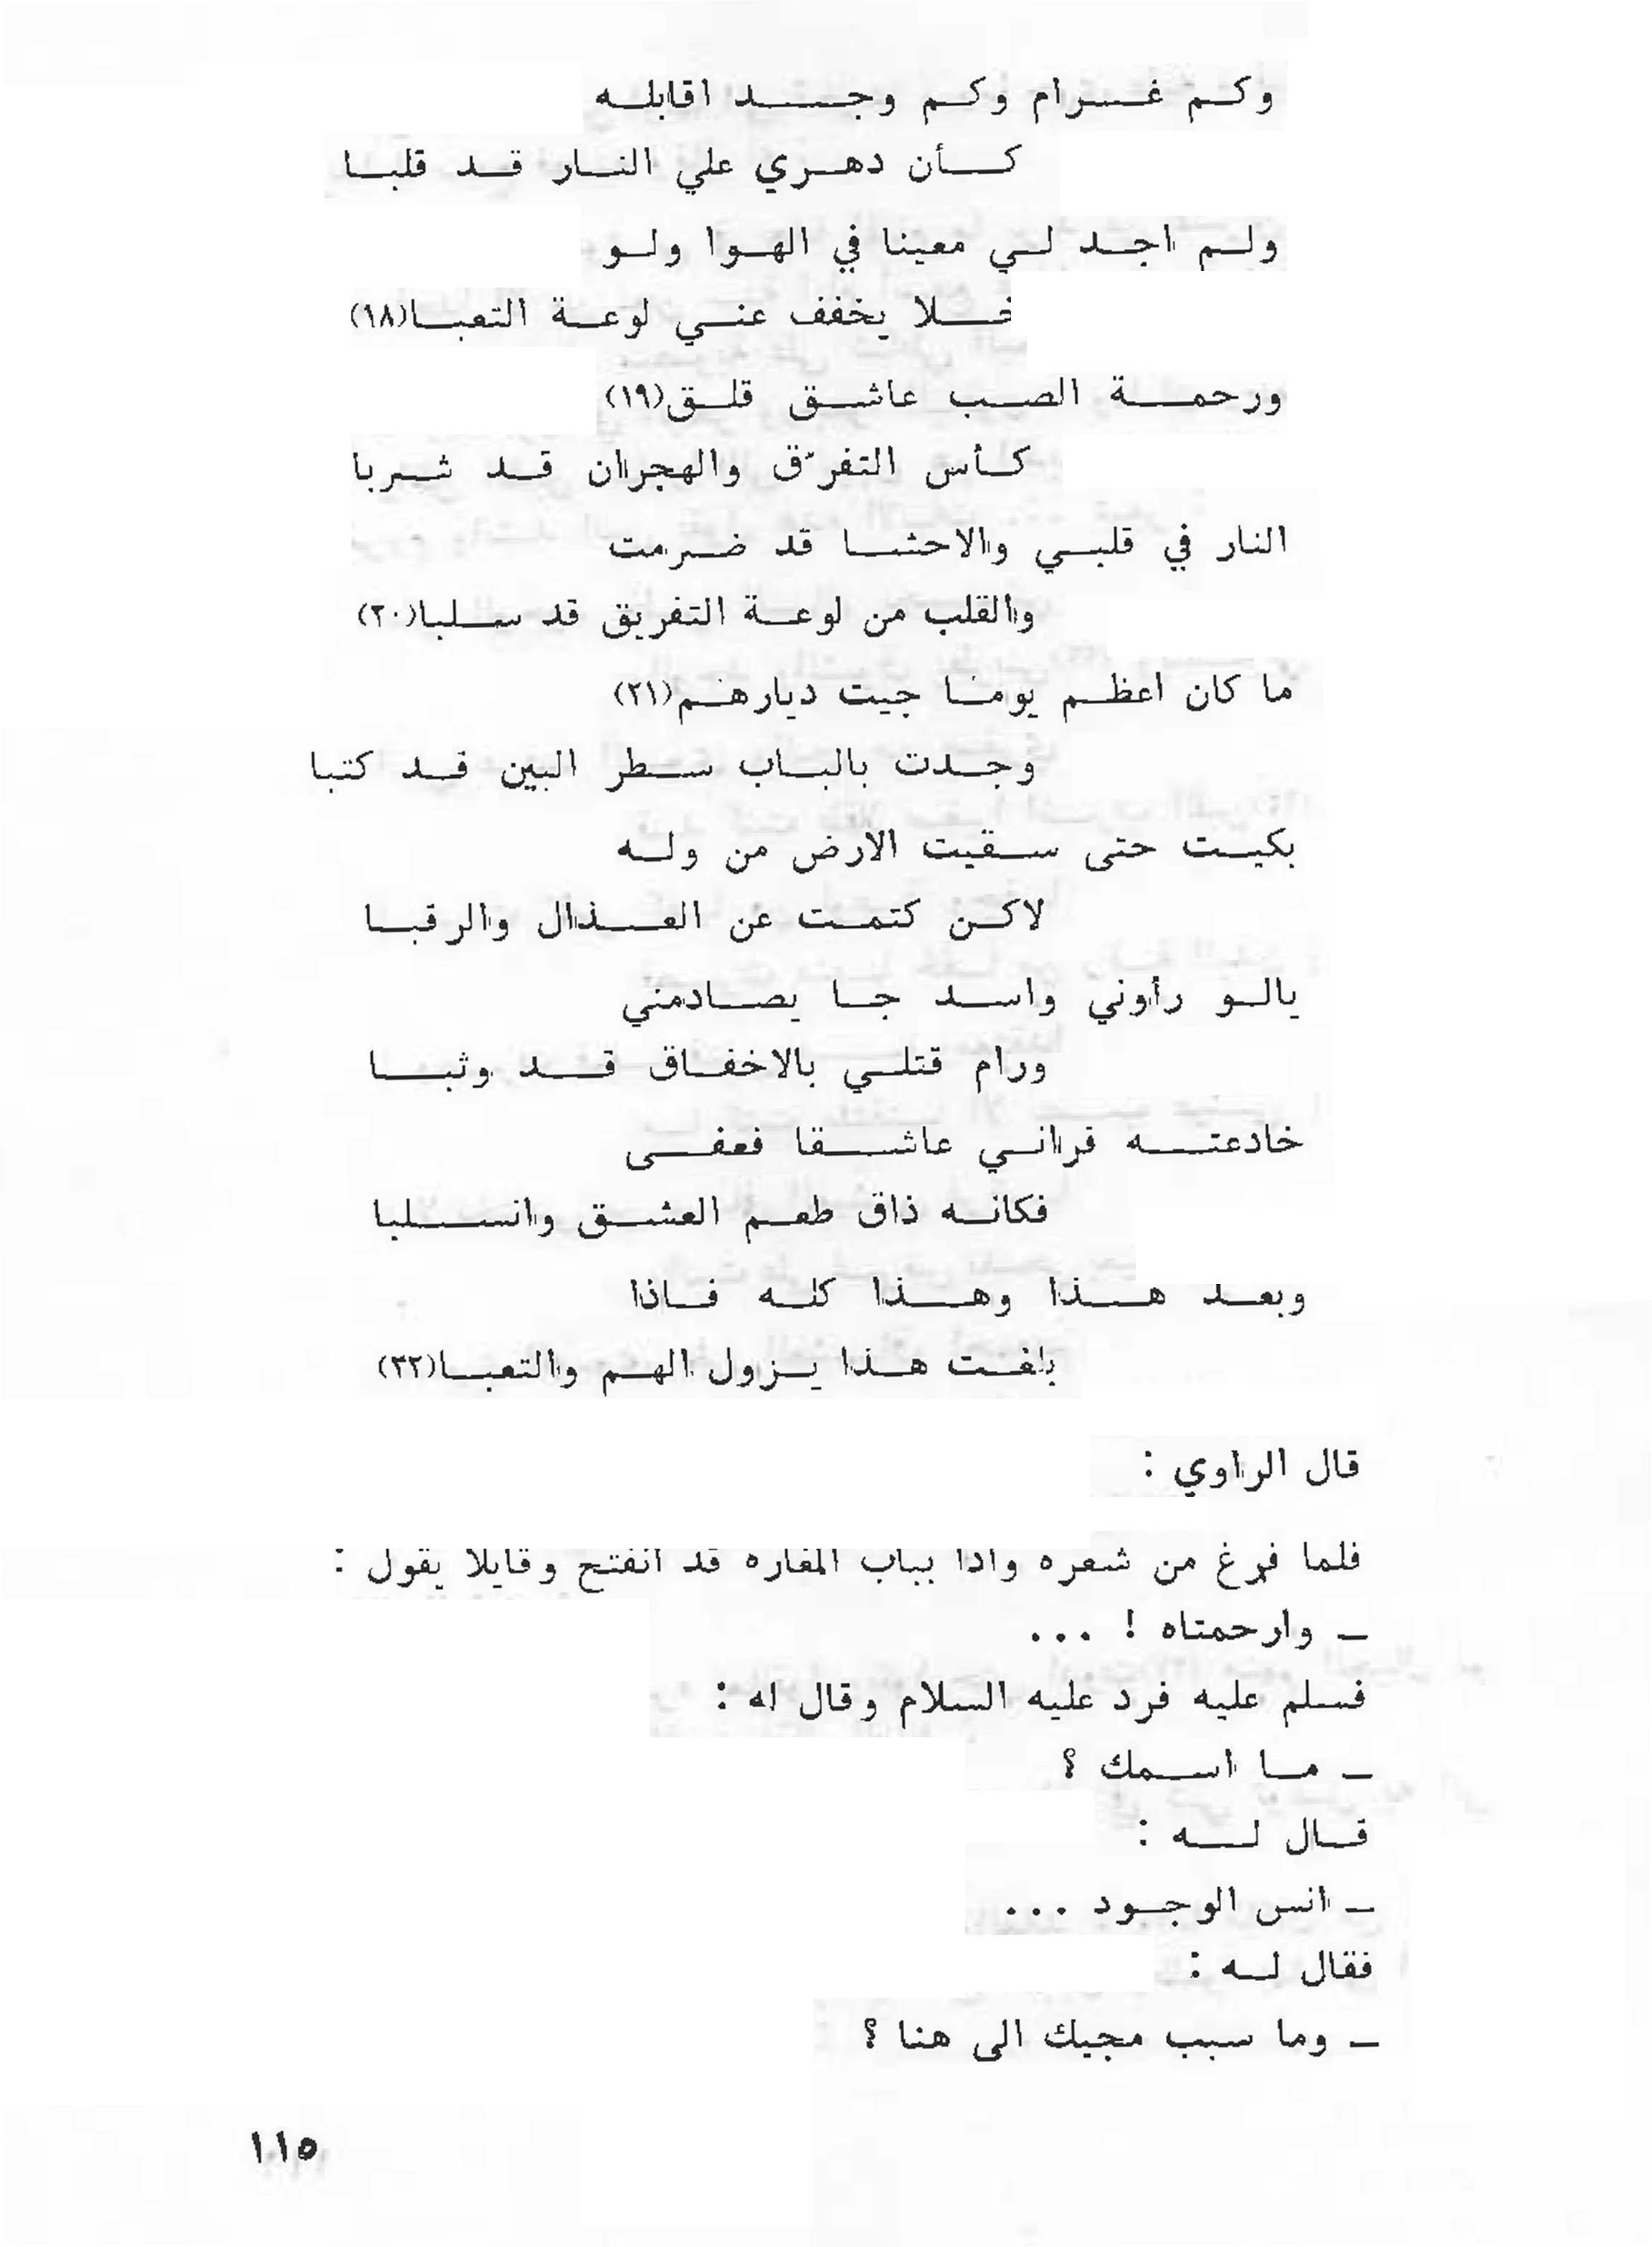 وكم غرام وكم وجد اقابله
كأن دهري علي النار قد قلبا
ولم اجد لي معينا في الهوا ولو
خلا يخفف عني لوعة التعبا(١٨)
ورحمة الصب عاشق قلق(١٩)
كأس التفرّق والهجران قد شربا
النار في قلبي والاحشا قد ضرمت
والقلب من لوعة التفريق قد سلبا(٢٠)
ما كان اعظم يومنا جيت ديارهم(٢١)
وجدت بالباب سطر البين قد كتبا
بكيت حتى سقيت الارض من وله
لاكن كتمت عن العذال والرقبا
يالو رأوني واسد جا يصادمني
ورام قتلي بالاخفاق قد وثبا
خادعته فراني عاشقا فعفى
فكانه ذاق طعم العشق وانسلبا
وبعد هذا وهذا كله فاذا
بلغت هذا يزول الهم والتعبا(٢٢)
قال الراوي :
فلما فرغ من شعره واذا بباب المغاره قد انفتح وقايلا يقول :
ـ وارحمتاه ! ...
فسلم عليه فرد عليه السلام وقال له :
ـ ما اسمك ؟
قال له :
ـ انس الوجود ...
فقال له :
ـ وما سبب مجيك الى هنا ؟
١١٥